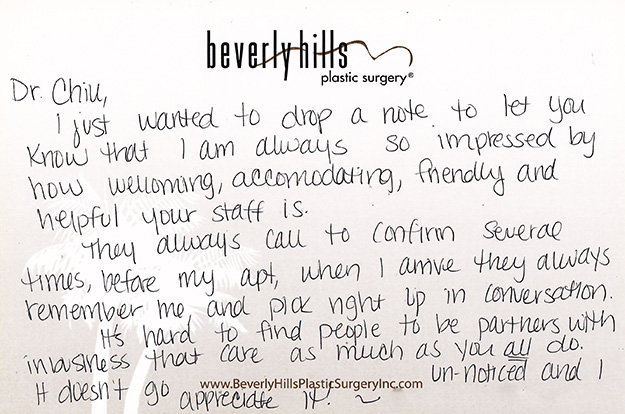 beverly hills
plastic surgery®
Dr. Chiu,
I just wanted to drop a note to let you
know that I am always so impressed by
how welloming, accomodating, friendly and
helpful your staff is.
They always call to confirm several
times, before my apt, when I arrive they always
remember me, and pick right up in conversation.
It's hard to find people to be partners with
in business that care as much as you all do.
It doesn't go un-noticed and I
appreciate it! ~
www.BeverlyHillsPlasticSurgeryInc.com